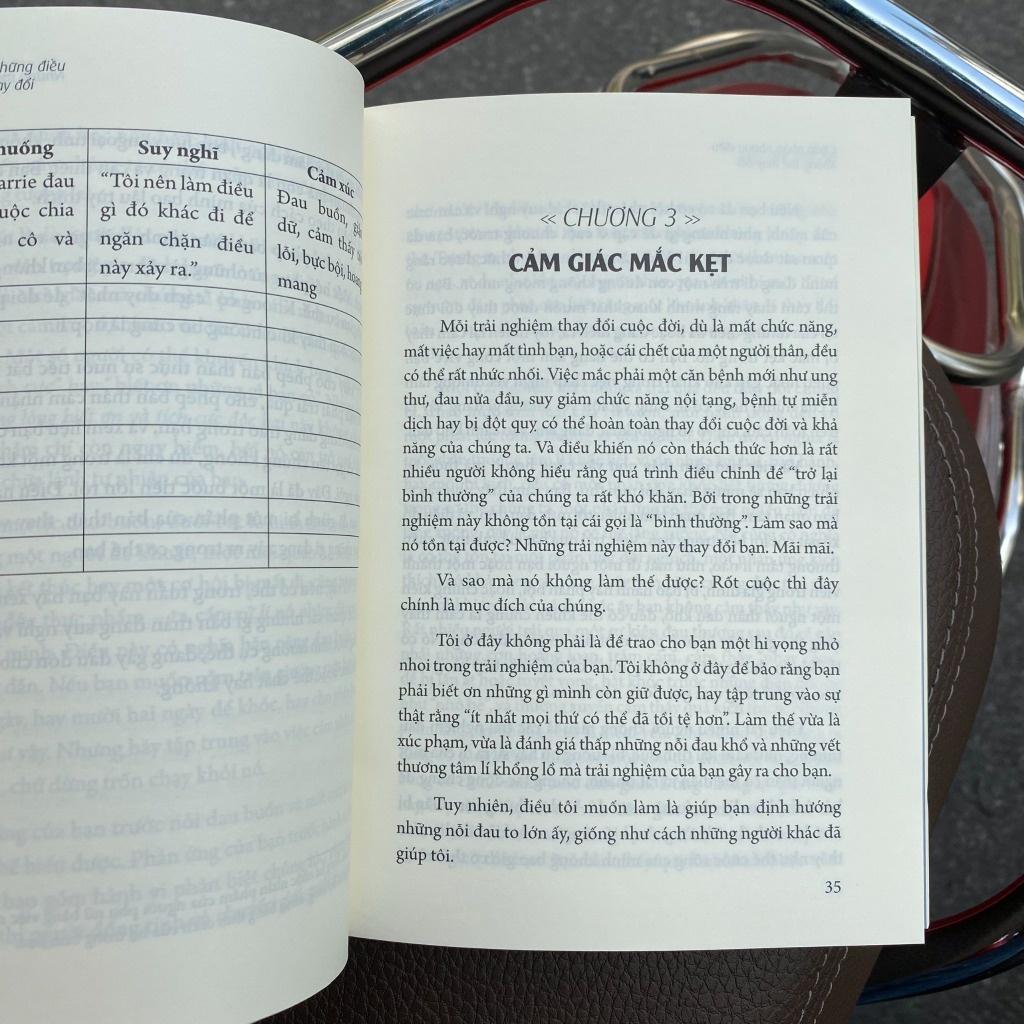 hững điều
y đổi
huống
Suy nghĩ
Cảm xúc
arrie đau
uộc chia
cô và
“Tôi nên làm điều
gì đó khác đi để
ngăn chặn điều
này xảy ra.”
Đau buồn,
dữ, cảm thấy
lỗi, bực bội,
mang
« CHƯƠNG 3 »
CẢM GIÁC MẮC KẸT
Mỗi trải nghiệm thay đổi cuộc đời, dù là mất chức năng,
mất việc hay mất tình bạn, hoặc cái chết của một người thân, đều
có thể rất nhức nhối. Việc mắc phải một căn bệnh mới như ung
thư, đau nửa đầu, suy giảm chức năng nội tạng, bệnh tự miễn
dịch hay bị đột quỵ có thể hoàn toàn thay đổi cuộc đời và khả
năng của chúng ta. Và điều khiến nó còn thách thức hơn là rất
nhiều người không hiểu rằng quá trình điều chỉnh để “trở lại
bình thường” của chúng ta rất khó khăn. Bởi trong những trải
nghiệm này không tồn tại cái gọi là “bình thường”. Làm sao mà
nó tồn tại được? Những trải nghiệm này thay đổi bạn. Mãi mãi.
Và sao mà nó không làm thế được? Rốt cuộc thì đây
chính là mục đích của chúng.
Tôi ở đây không phải là để trao cho bạn một hi vọng nhỏ
nhoi trong trải nghiệm của bạn. Tôi không ở đây để bảo rằng bạn
phải biết ơn những gì mình còn giữ được, hay tập trung vào sự
thật rằng “ít nhất mọi thứ có thể đã tồi tệ hơn”. Làm thế vừa là
xúc phạm, vừa là đánh giá thấp những nỗi đau khổ và những vết
thương tâm lí khổng lồ mà trải nghiệm của bạn gây ra cho bạn.
Tuy nhiên, điều tôi muốn làm là giúp bạn định hướng
những nỗi đau to lớn ấy, giống như cách những người khác đã
giúp tôi.
35